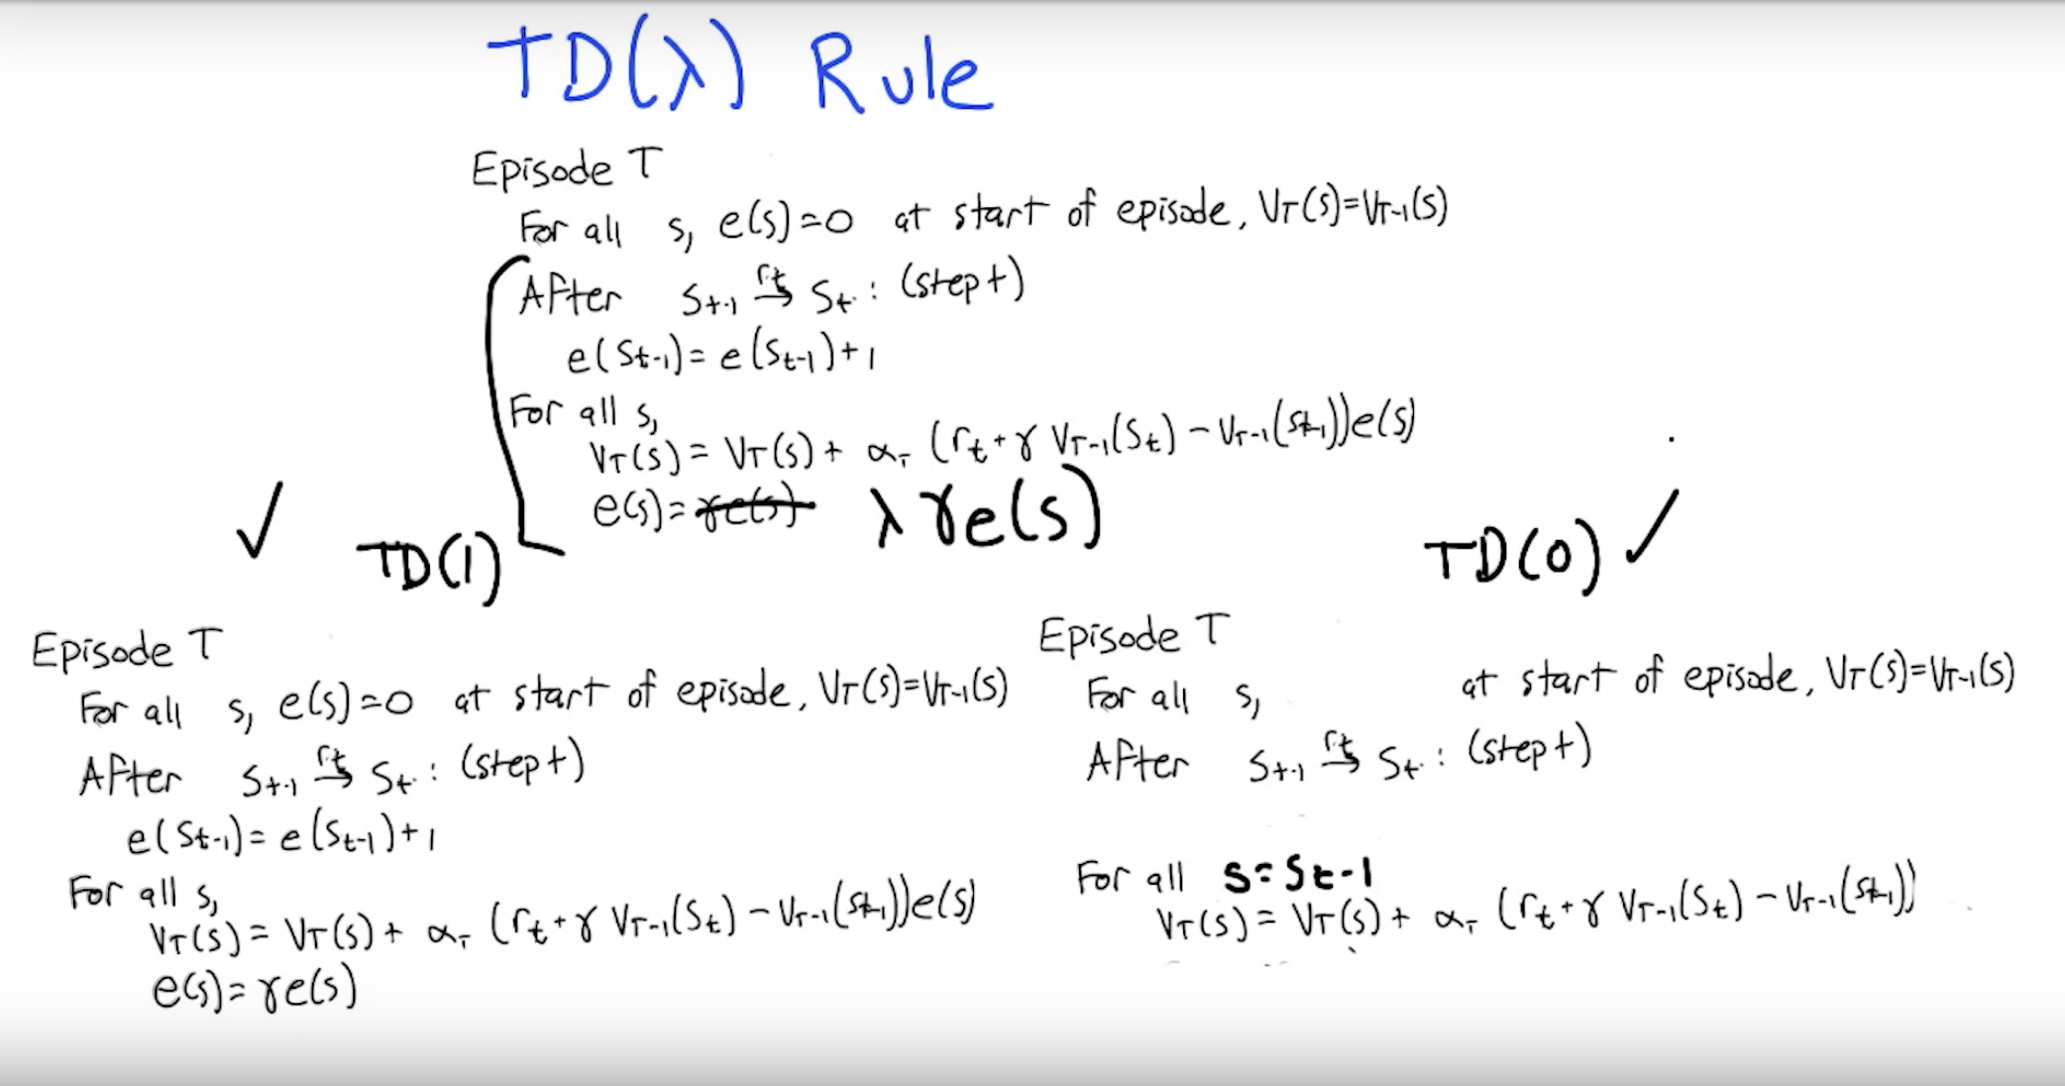 TD(λ) Rule
Episode T
For all s, e(s)=0 at start of episode, V_T(s)=V_{T-1}(s)
After S_{t-1} →^{r_t} S_t : (step t)
e(S_{t-1})= e(S_{t-1})+1
For all s,
V_T(s) = V_T(s) + α_T (r_t + γ V_{T-1}(S_t) - V_{T-1}(S_{t-1}))e(s)
e(s)= γe(s) λγe(s)
TD(1)
TD(0)
Episode T
For all s, e(s)=0 at start of episode, V_T(s)=V_{T-1}(s)
After S_{t-1} →^{r_t} S_t : (step t)
e(S_{t-1})= e(S_{t-1})+1
For all s,
V_T(s) = V_T(s) + α_T (r_t + γ V_{T-1}(S_t) - V_{T-1}(S_{t-1}))e(s)
e(s)= γe(s)
Episode T
For all s, at start of episode, V_T(s)=V_{T-1}(s)
After S_{t-1} →^{r_t} S_t : (step t)
For all s = S_{t-1}
V_T(s) = V_T(s) + α_T (r_t + γ V_{T-1}(S_t) - V_{T-1}(S_{t-1}))